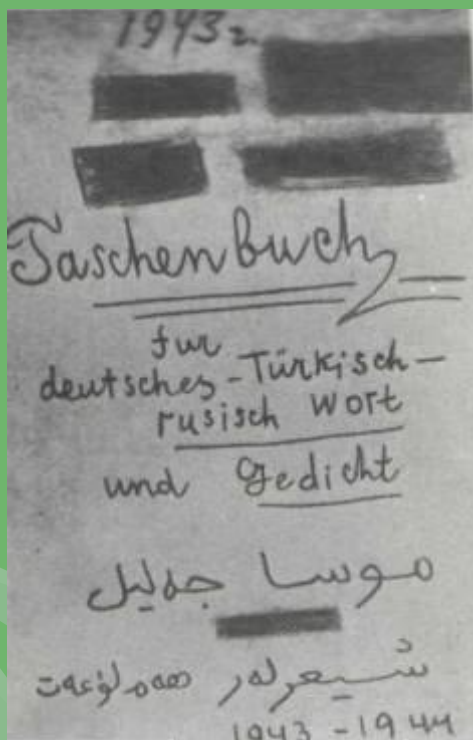 1943г.
Taschenbuch
fur
deutsches-Türkisch-
rusisch Wort
und Gedicht
موسا جەلیل
شیعرلەر هەم لوغەت
1943-1944